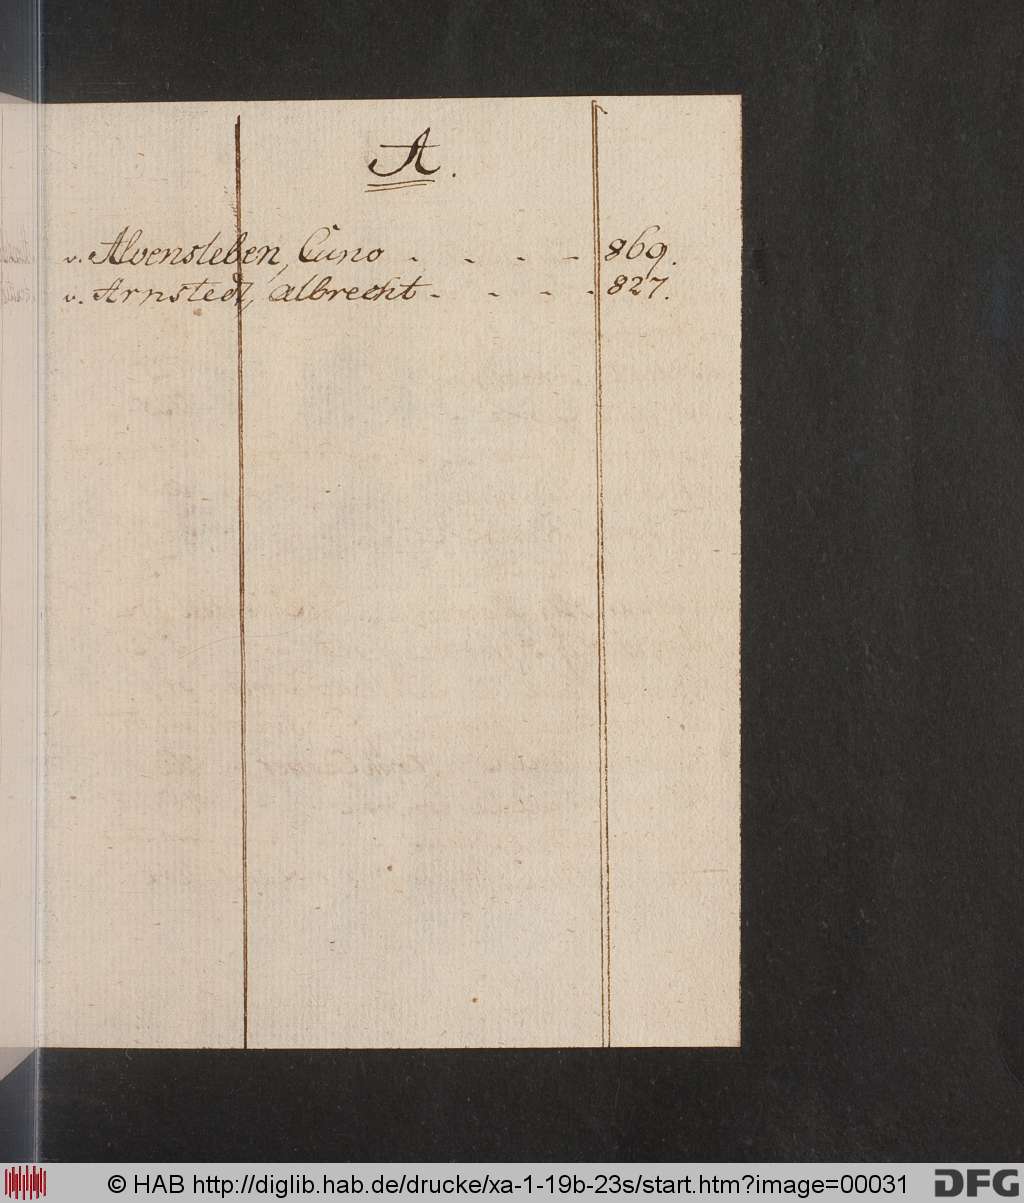 A.
v. Alvensleben, Cuno - - - - 869.
v. Arnstedt, Albrecht - - - - 827.
© HAB http://diglib.hab.de/drucke/xa-1-19b-23s/start.htm?image=00031
DFG